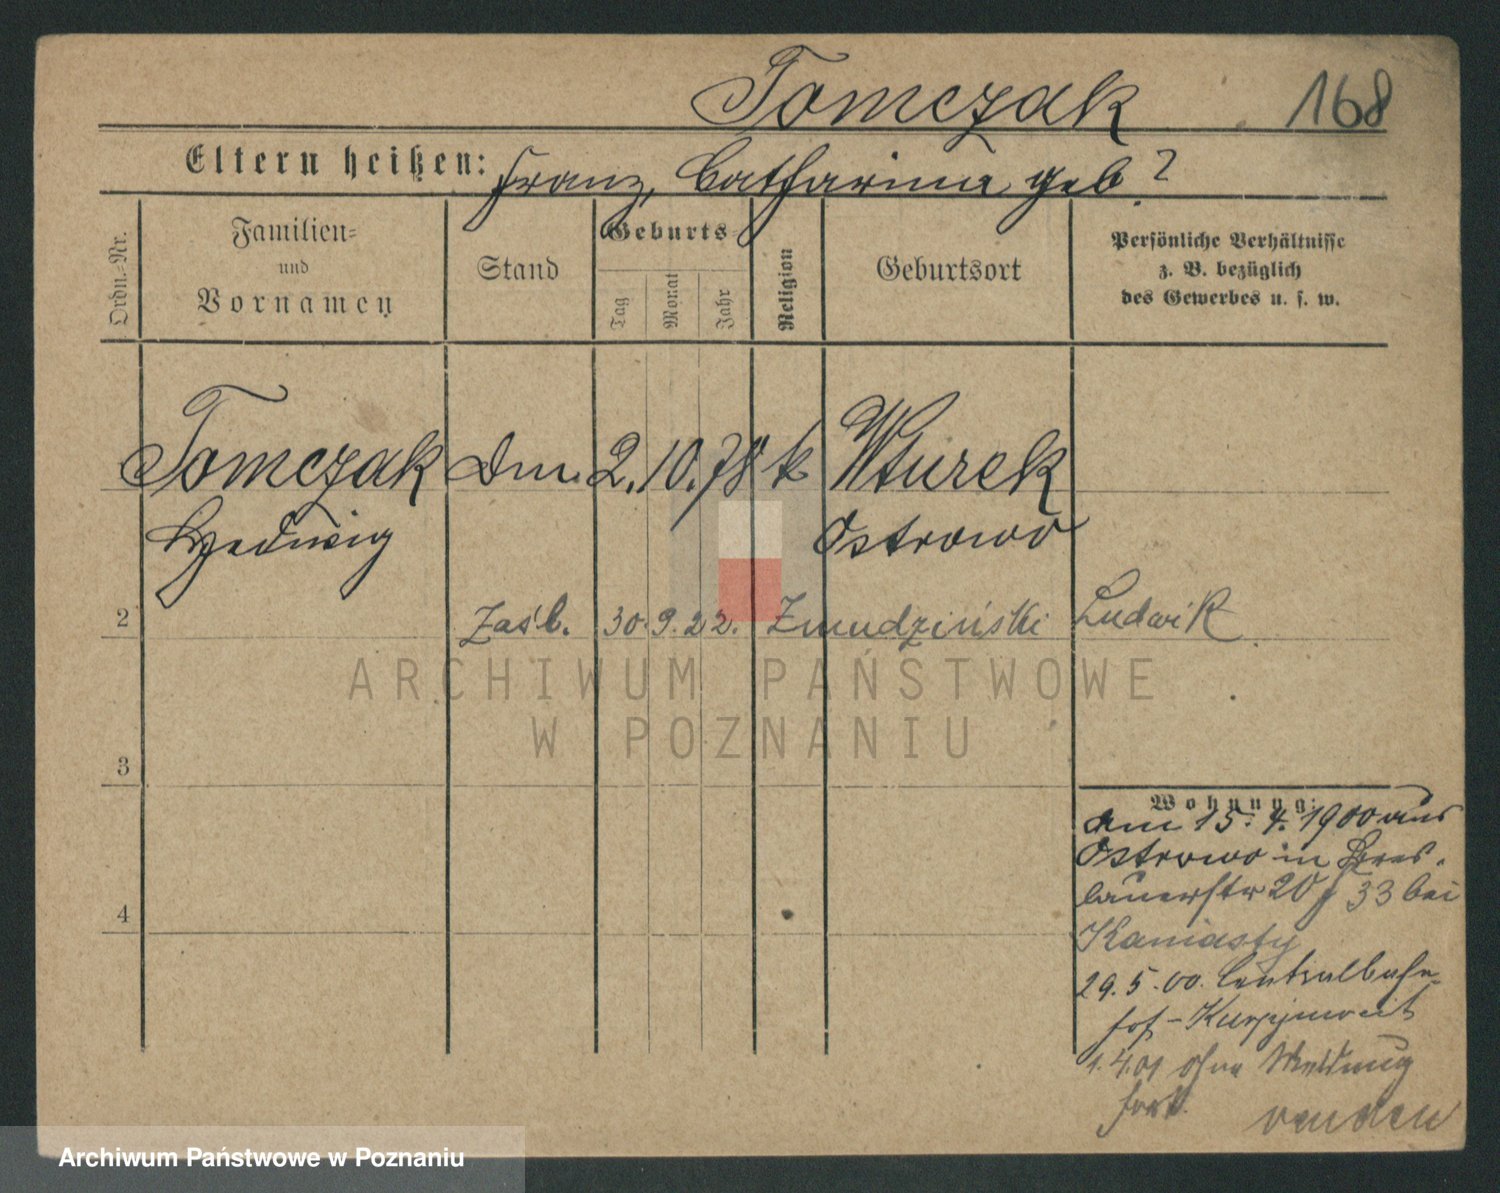 Tomczak 168
Eltern heißen: Franz, Catharina geb ?
Ordn.=Nr.
Familien=
und
Vornamen
Stand
Geburts=
Tag
Monat
Jahr
Religion
Geburtsort
Persönliche Verhältnisse
z. B. bezüglich
des Gewerbes u. s. w.
Tomczak Dm. 2. 10. 78 k Wturek
Hedwig Ostrowo
2 Zaśl. 30. 9. 22. Zmudziński Ludwik
ARCHIWUM PAŃSTWOWE
W POZNANIU
3
Wohnung:
am 15. 4. 1900 aus
Ostrowo in Bres-
lauerstr 20 33 bei
Kaniasty
29. 5. 00. Centralbahn
hof -
1. 4. 01 ohne Meldung
fort.
wenden
4
Archiwum Państwowe w Poznaniu